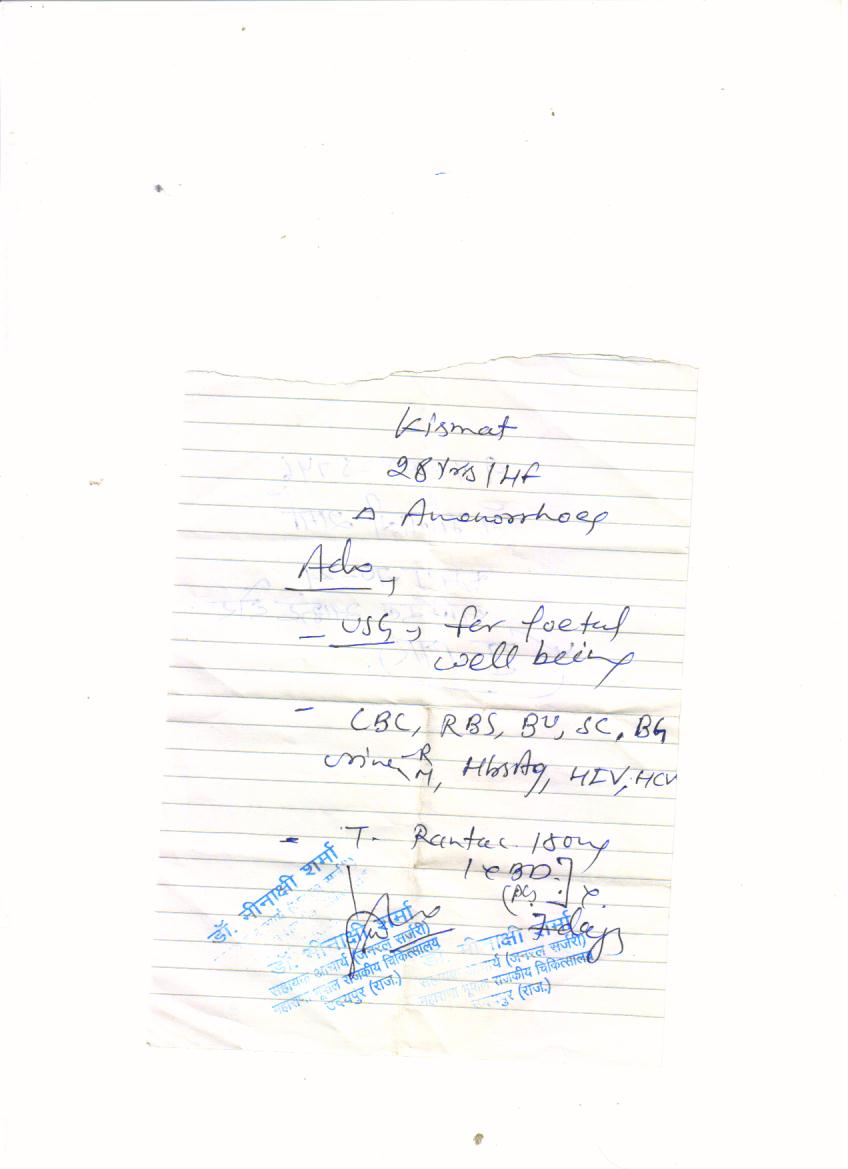 Kismat
28 Yrs / Hf
△ Amenorrhoea
Adv,
- USG → for foetal
well being
- CBC, RBS, BU, SC, BG
urine R
M, HbsAg, HIV, HCV
- T. Rantac 150mg
1 × BD
(PC)
7 days
डॉ. मीनाक्षी शर्मा
डॉ. मीनाक्षी शर्मा
सहायक आचार्य (जनरल सर्जरी)
महाराणा भूपाल राजकीय चिकित्सालय
उदयपुर (राज.)
मीनाक्षी शर्मा
आचार्य (जनरल सर्जरी)
महाराणा भूपाल राजकीय चिकित्सालय
(राज.)